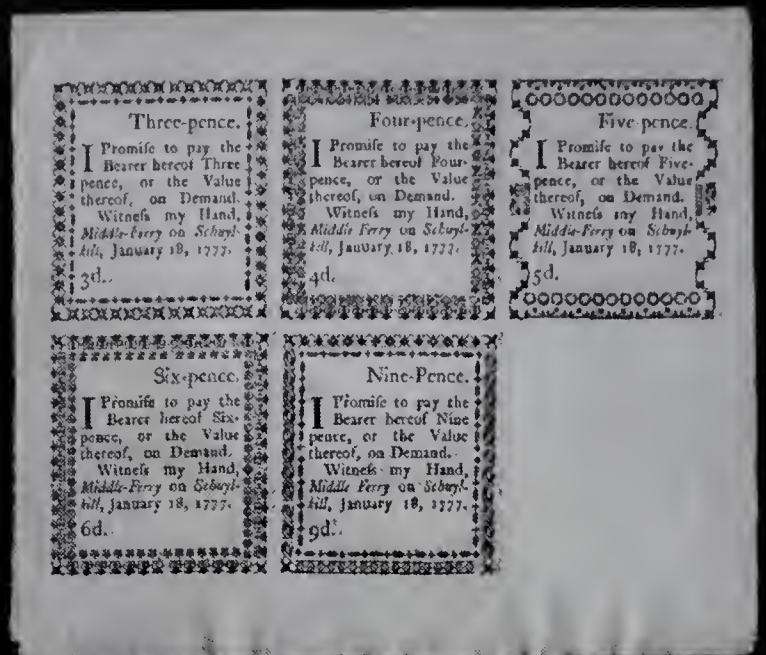 Three-pence.
I Promiſe to pay the
Bearer hereof Three
pence, or the Value
thereof, on Demand.
Witneſs my Hand,
Middle-Ferry on Schuyl-
kill, January 18, 1777.
3d.
Four-pence.
I Promiſe to pay the
Bearer hereof Four-
pence, or the Value
thereof, on Demand.
Witneſs my Hand,
Middle Ferry on Schuyl-
kill, January 18, 1777.
4d.
Five-pence.
I Promiſe to pay the
Bearer hereof Five-
pence, or the Value
thereof, on Demand.
Witneſs my Hand,
Middle-Ferry on Schuyl-
kill, January 18, 1777.
5d.
Six-pence.
I Promiſe to pay the
Bearer hereof Six-
pence, or the Value
thereof, on Demand.
Witneſs my Hand,
Middle-Ferry on Schuyl-
kill, January 18, 1777.
6d.
Nine-Pence.
I Promiſe to pay the
Bearer hereof Nine
pence, or the Value
thereof, on Demand.
Witneſs my Hand,
Middle Ferry on Schuyl-
kill, January 18, 1777.
9d.